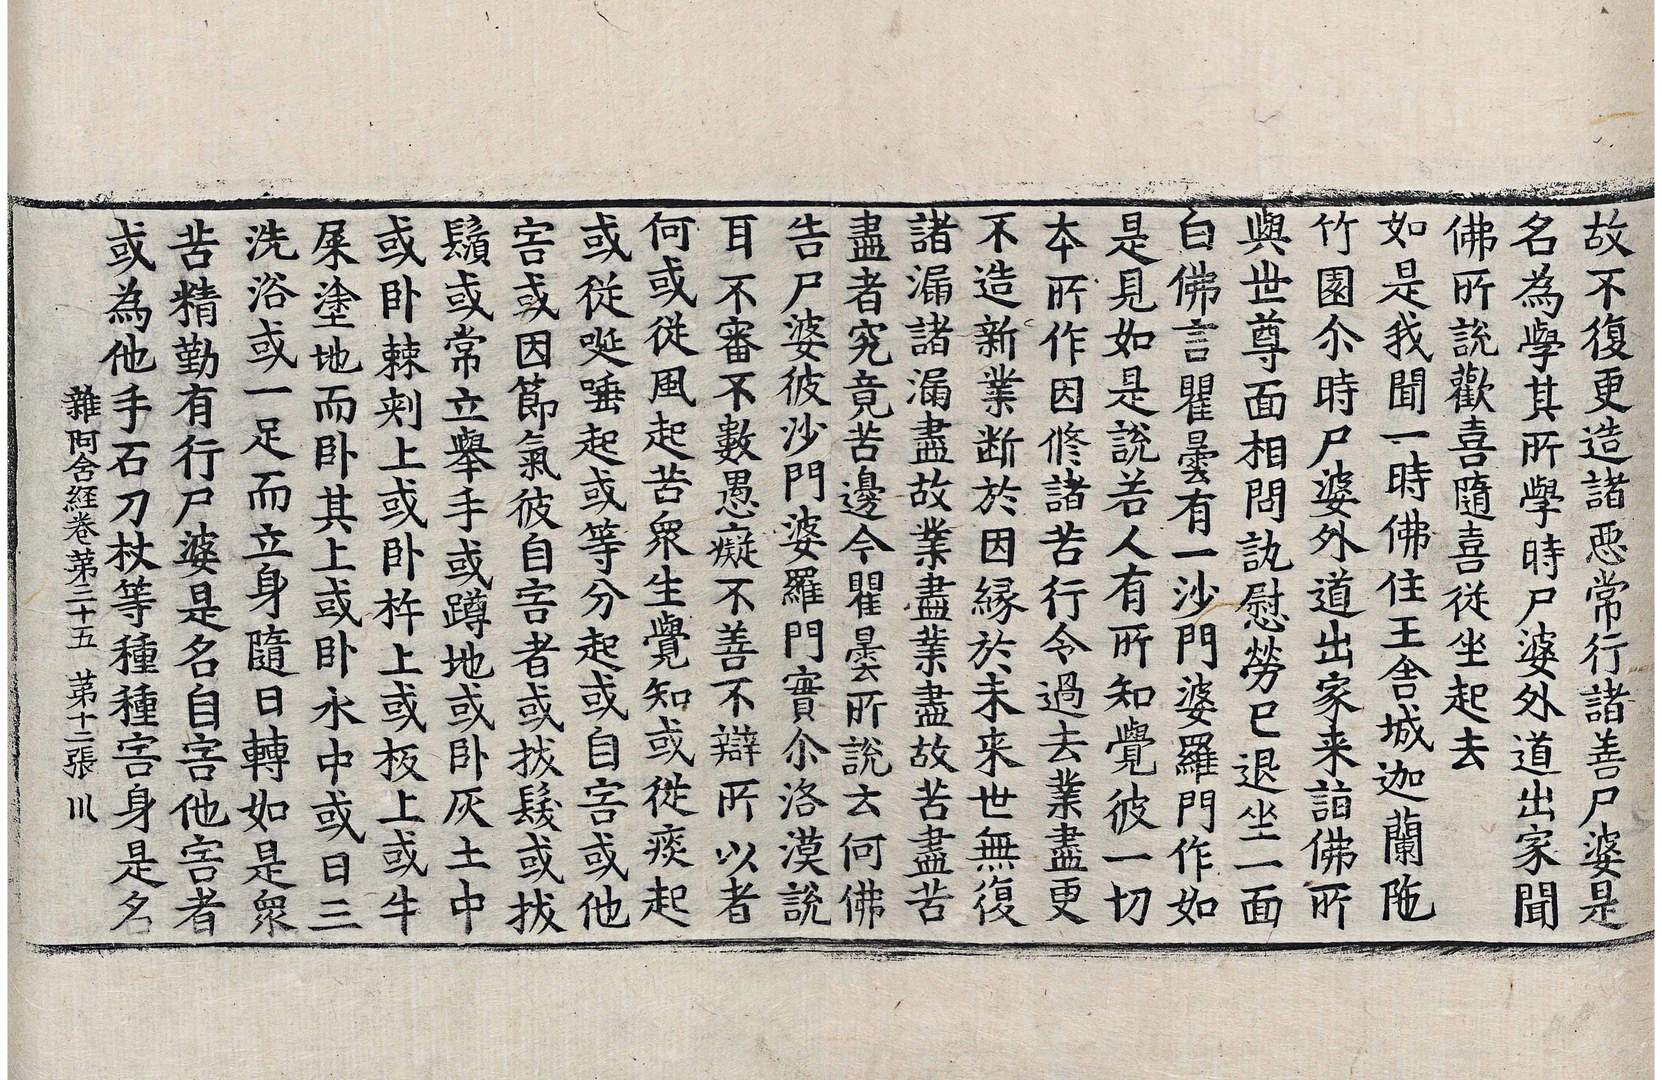 故不復更造諸惡常行諸善尸婆是
名為學其所學時尸婆外道出家聞
佛所說歡喜隨喜從坐起去
如是我聞一時佛住王舍城迦蘭陁
竹園尒時尸婆外道出家来詣佛所
與世尊面相問訊慰勞已退坐一面
白佛言瞿曇有一沙門婆羅門作如
是見如是說若人有所知覺彼一切
本所作因修諸苦行令過去業盡更
不造新業断於因緣於未来世無復
諸漏諸漏盡故業盡業盡故苦盡苦
盡者究竟苦邊今瞿曇所說云何佛
告尸婆彼沙門婆羅門實尒洛漠說
耳不審不數愚癡不善不辯所以者
何或從風起苦衆生覺知或從痰起
或從唌唾起或等分起或自害或他
害或因節氣彼自害者或拔髮或拔
鬚或常立舉手或蹲地或卧灰土中
或卧棘刾上或卧杵上或板上或牛
屎塗地而卧其上或卧水中或日三
洗浴或一足而立身隨日轉如是衆
苦精勤有行尸婆是名自害他害者
或為他手石刀杖等種種害身是名
雜阿含経卷第三十五　第十二張　川